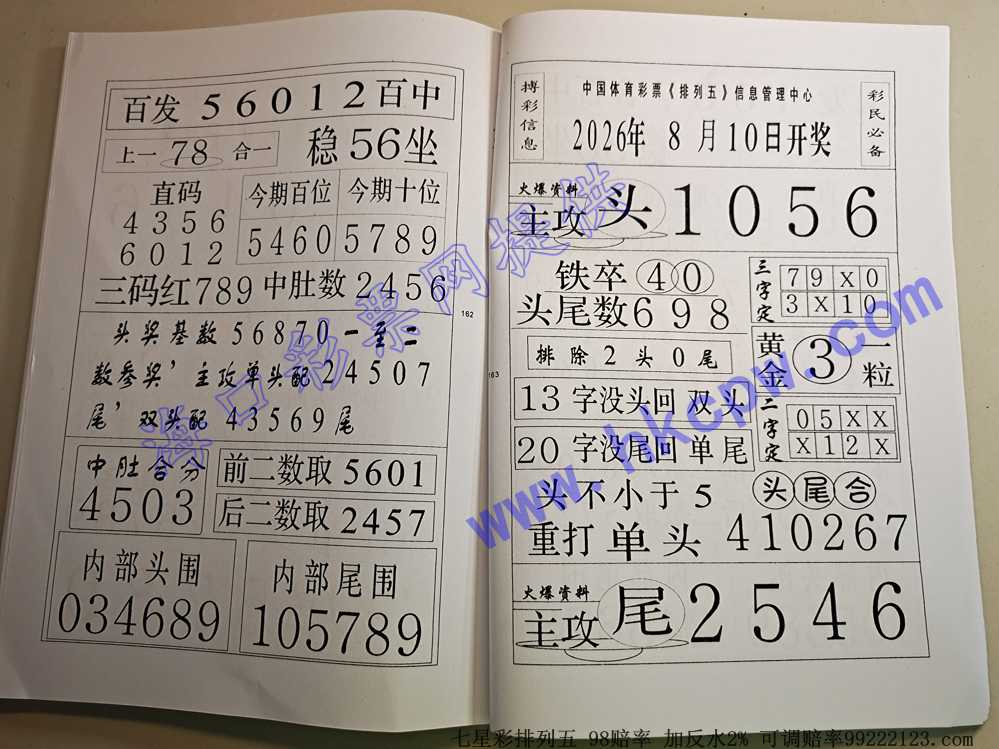 百发 56012 百中
上一 78 合一
稳 56 坐
直码
4356
6012
今期百位
5460
今期十位
5789
三码红789 中肚数 2456
头奖基数 56870 一至二
数参奖’主攻单头配24507
尾’双头配 43569 尾
中胜合分
4503
前二数取 5601
后二数取 2457
内部头围
034689
内部尾围
105789
162
163
搏彩信息
中国体育彩票《排列五》信息管理中心
2026年 8 月 10日开奖
彩民必备
火爆资料
主攻 头 1056
铁卒 40
头尾数 698
三字定
79X0
3X10
排除 2 头 0 尾
黄金 3 一粒
13 字没头回 双头
20 字没尾回 单尾
二字定
05XX
X12X
头不小于 5
头尾合
重打单头 410267
火爆资料
主攻 尾 2546
海口彩票网提供
www.hkcpw.com
七星彩排列五 98赔率 加反水2% 可调赔率99222123.com